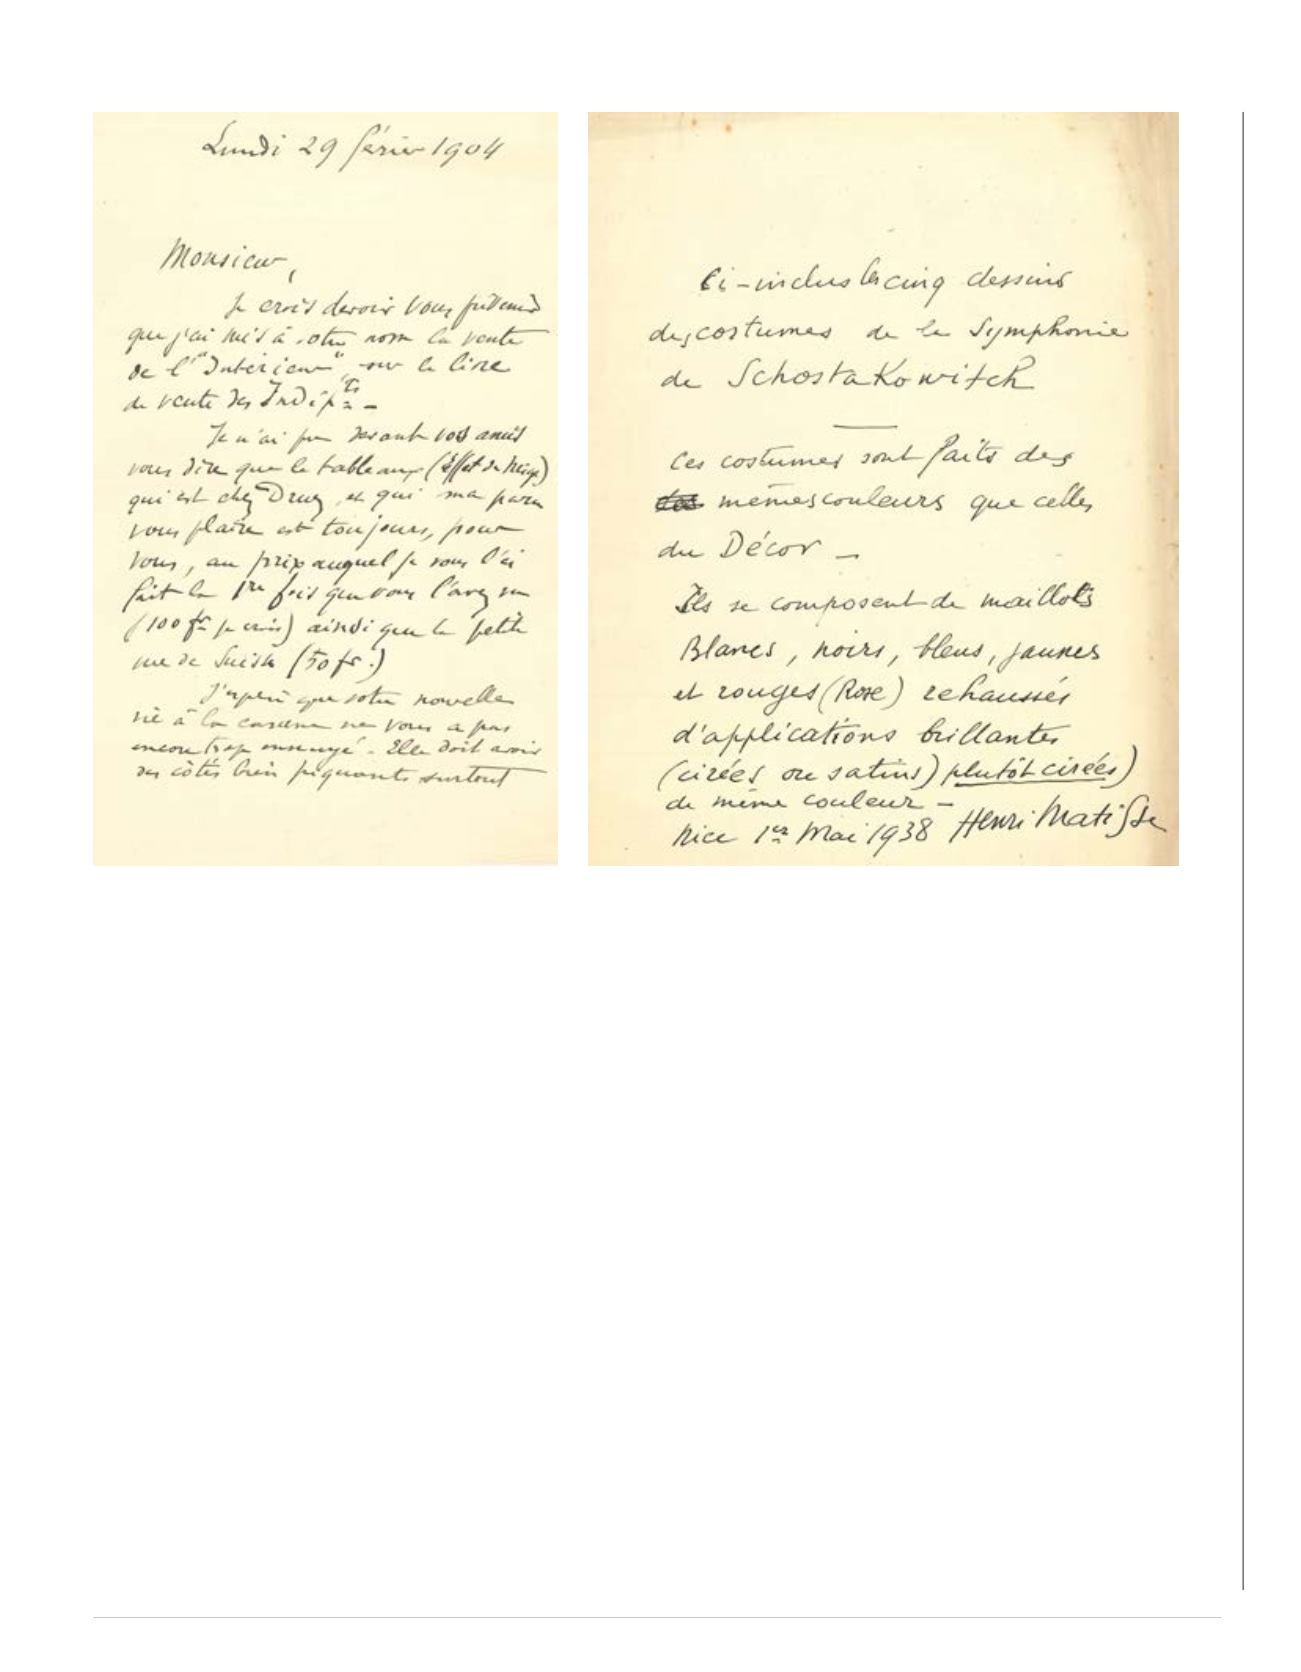 Lundi 29 février 1904
Monsieur,
Je crois devoir vous prévenir
que j'ai mis à votre nom la vente
de l'"Intérieur", sur le livre
de vente des Indépts –
Je n'ai pu devant vos amis
vous dire que le tableau (Effet de Neige)
qui est chez Druet et qui m'a paru
vous plaire est toujours, pour
vous, au prix auquel je vous l'ai
fait la 1re fois que vous l'avez vu
(100 frs je crois) ainsi que la petite
vue de Suisse (50 fr.)
J'espère que votre nouvelle
vie à la caserne ne vous a pas
encore trop ennuyé – Elle doit avoir
des côtés bien piquants surtout
Ci-inclus les cinq dessins
des costumes de la Symphonie
de Schostakowitch
Ces costumes sont faits des
mêmes couleurs que celles
du Décor –
Ils se composent de maillots
Blancs, noirs, bleus, jaunes
et rouges (Rose) rehaussés
d'applications brillantes
(cirées ou satins) plutôt cirées)
de même couleur –
Nice 1er Mai 1938 Henri Matisse